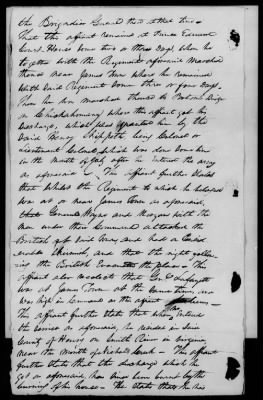 the Brigadier General there at that time
That the affiant remained at Prince Edward
Court House some two or three days, when he
together with the Regiment aforesaid marched
thence near James Town where he remained
with said Regiment some three or four days.
Then he was marched thence to Bottoms bridge
on Chickahominy where this affiant got his
discharge, which was by the
said Henry Skipwith being Colonel or
Lieutenant Colonel, which was done him
in the month of July after he entered the army
as aforesaid — The affiant further States
that whilst the Regiment to which he belonged
was at or near James Town as aforesaid,
that Generals Wayne and Morgan with the
men under their Command attacked the
British at said Town and had a
Skirmish, and that the night
ing the British the place — This
affiant also recollects that Genl Lafayette
was at James Town at the same time, and
was high in Command as the affiant
The affiant further states that when he entered
the service as aforesaid, he resided in said
County of Henry on Smith River in Virginia
near the Mouth of Nichols Creek — This affiant
further States that the discharge which he
got as aforesaid, has been burned by the
burning of his house — He States that he has